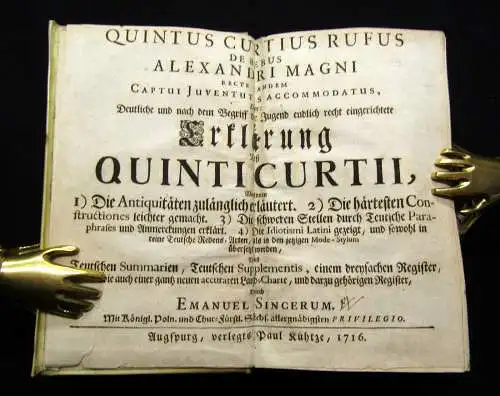 QUINTUS CURTIUS RUFUS
DE REBUS
ALEXANDRI MAGNI
RECTE TANDEM
CAPTUI JUVENTUTIS ACCOMMODATUS,
Deutliche und nach dem Begriff der Jugend endlich recht eingerichtete
Erklärung
QUINTI CURTII,
1) Die Antiquitäten zulänglich erläutert. 2) Die härtesten Con-
structiones leichter gemacht. 3) Die schweren Stellen durch Teutsche Para-
phrases und Anmerckungen erklärt. 4) Die Idiotismi Latini gezeigt, und sowohl in
reine Teutsche Redens-Arten, als in den jezigen Mode-Stylum
übersetzt worden,
Teutschen Summarien, Teutschen Supplementis, einem dreyfachen Register,
wie auch einer gantz neuen accuraten Land-Charte, und darzu gehörigen Register,
Durch
EMANUEL SINCERUM.
Mit Königl. Poln. und Chur-Fürstl. Sächs. allergnädigsten PRIVILEGIO.
Augspurg, verlegts Paul Kühtze, 1716.